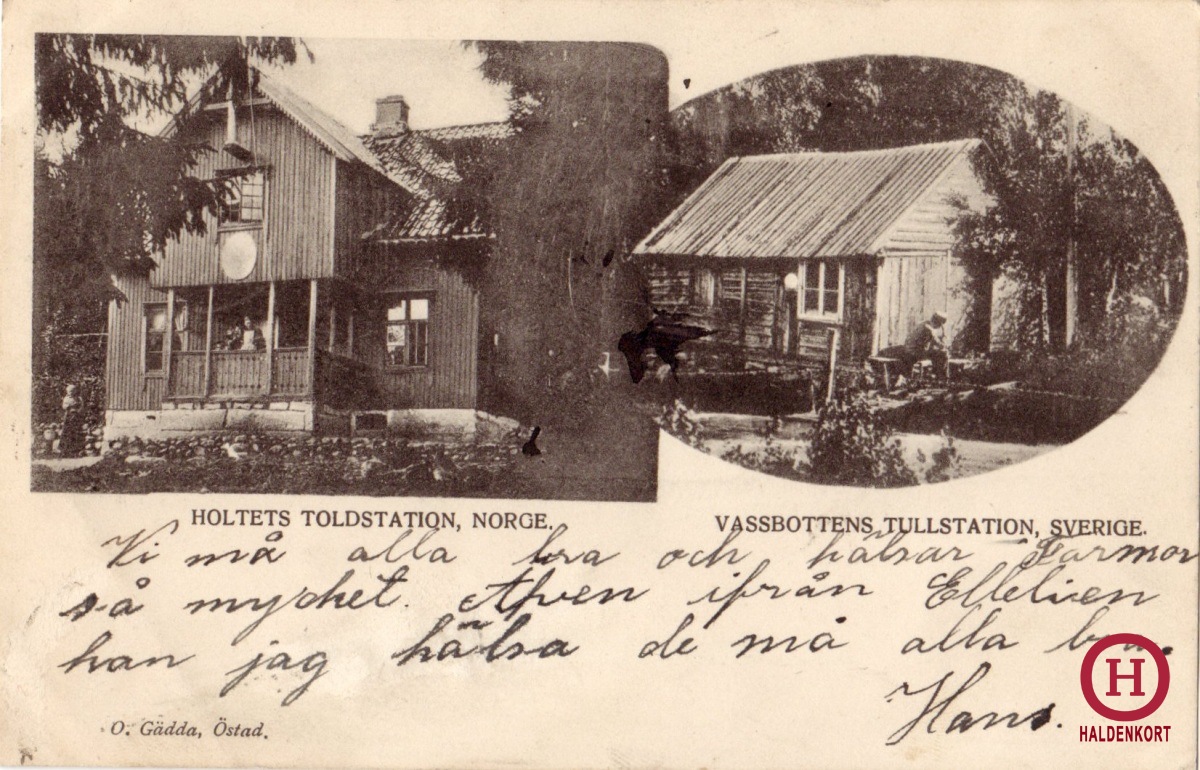 HOLTETS TOLDSTATION, NORGE.
VASSBOTTENS TULLSTATION, SVERIGE.
Vi må alla bra och hälsar Farmor
så mycket. Även ifrån Ellelien
kan jag hälsa de må alla bra.
Hans.
O. Gädda, Östad.
H
HALDENKORT